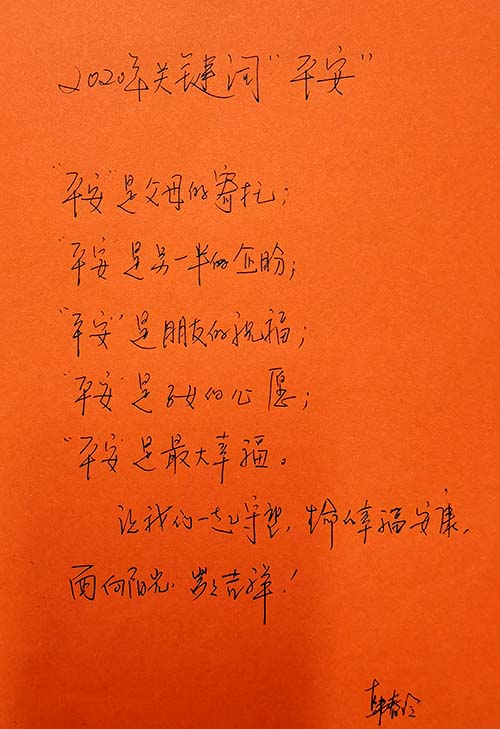 2020年关键词“平安”
“平安”是父母的寄托；
“平安”是另一半的企盼；
“平安”是朋友的祝福；
“平安”是子女的心愿；
“平安”是最大幸福。
让我们一起守望，生命的幸福安康，
面向阳光，岁岁吉祥！
韩春令